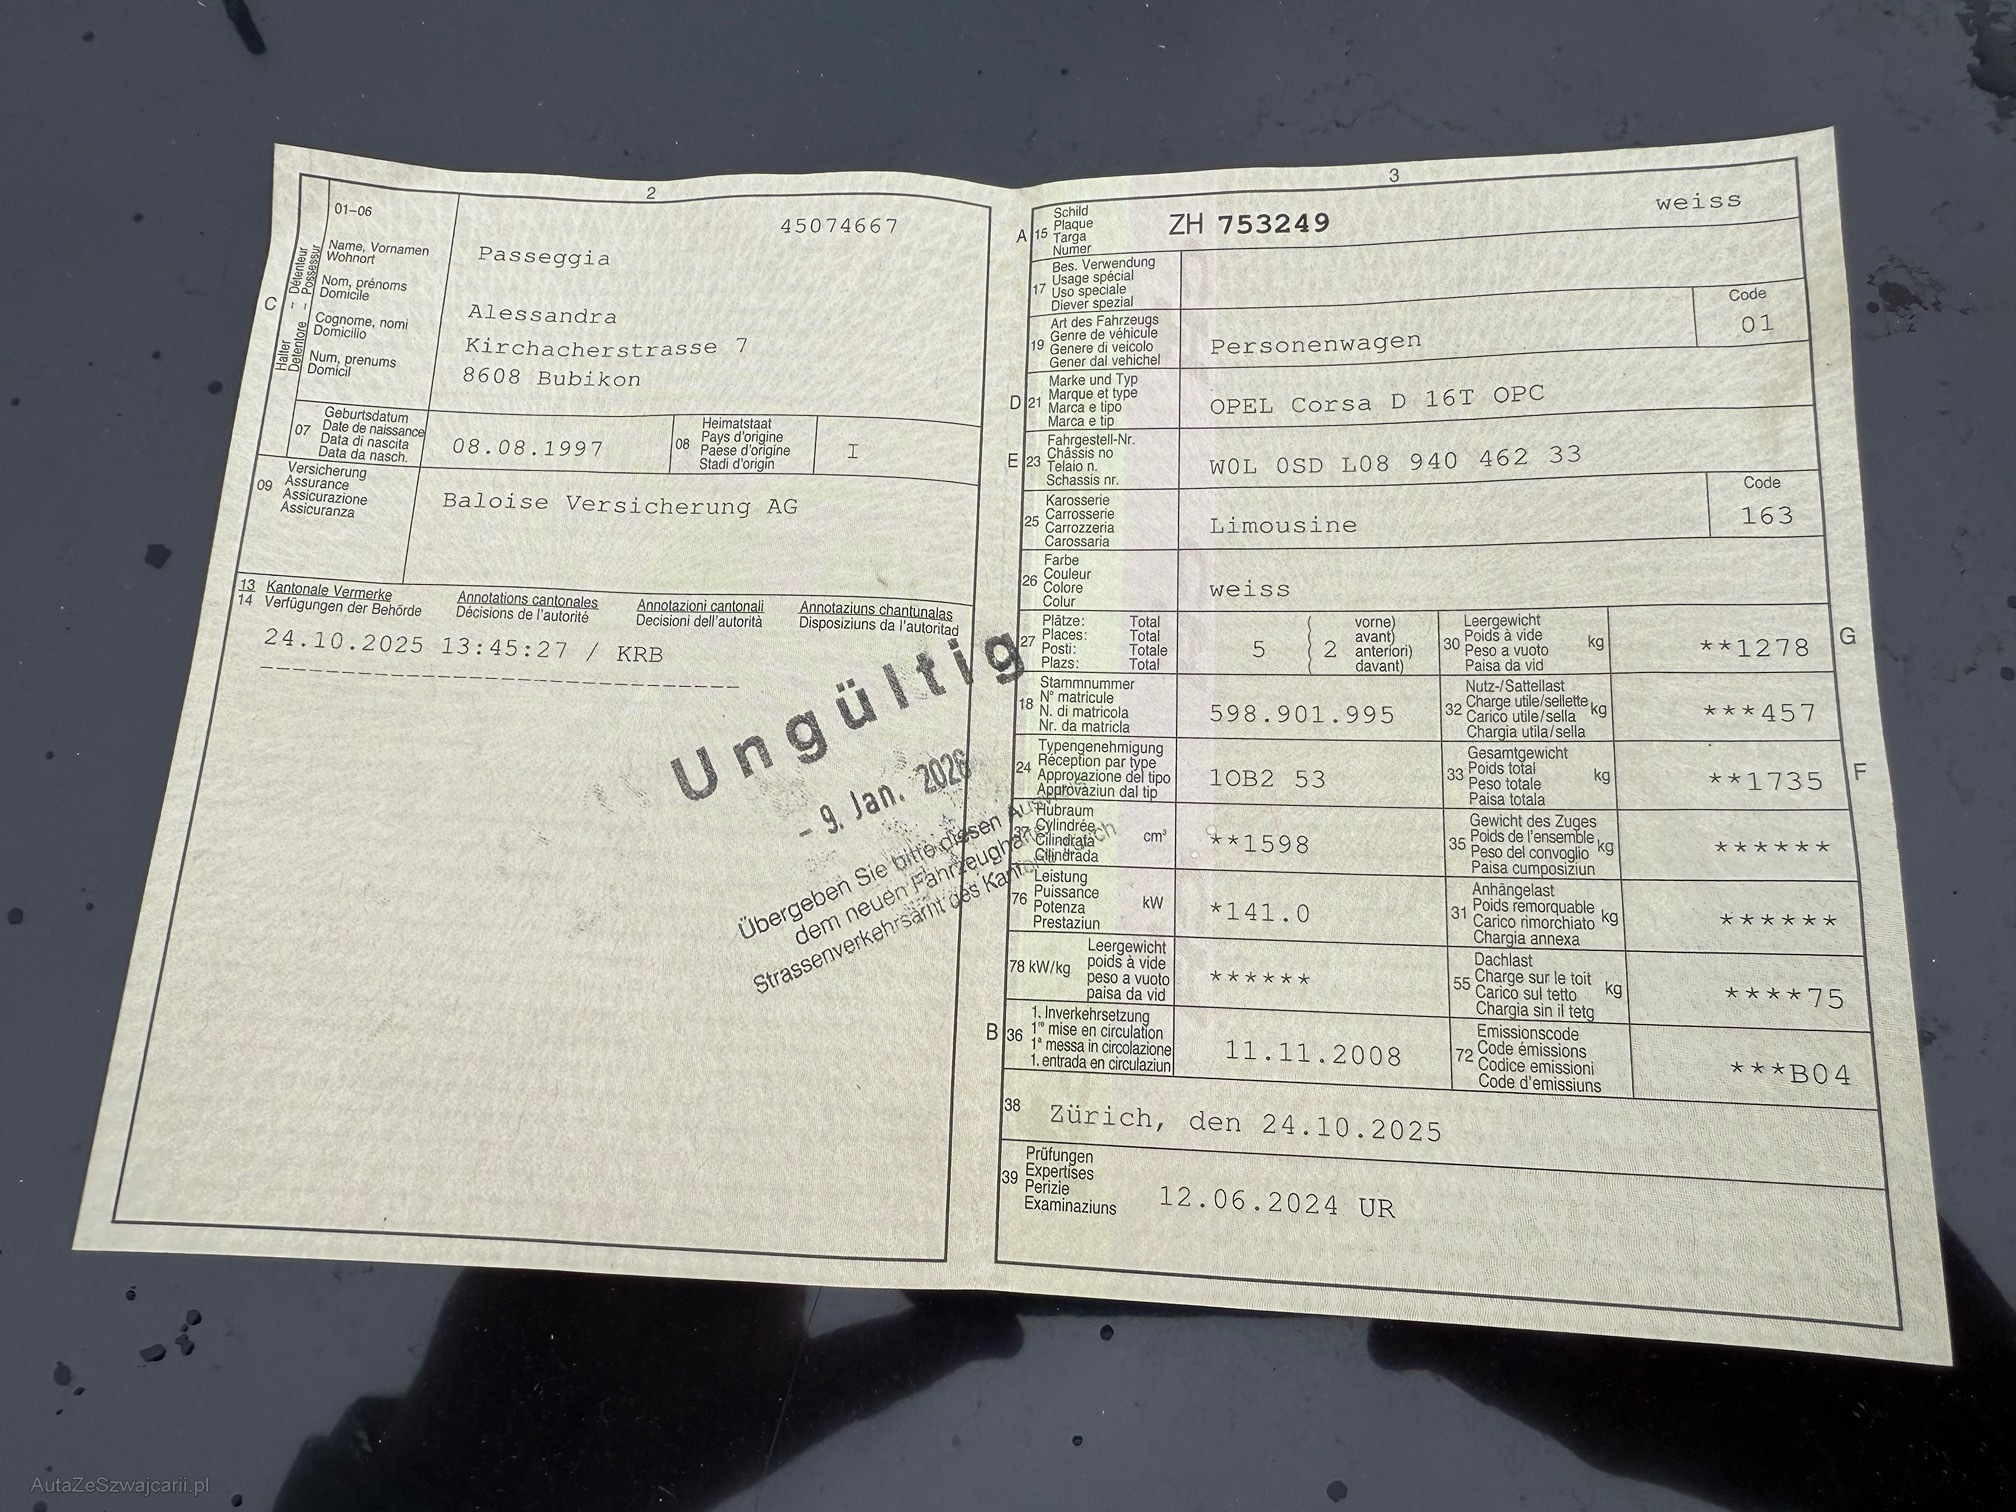 2
01-06
45074667
C
Halter – Détenteur
Detentore – Possessur
Name, Vornamen
Wohnort
Nom, prénoms
Domicile
Cognome, nomi
Domicilio
Num, prenums
Domicil
Passeggia
Alessandra
Kirchacherstrasse 7
8608 Bubikon
07
Geburtsdatum
Date de naissance
Data di nascita
Data da nasch.
08.08.1997
08
Heimatstaat
Pays d'origine
Paese d'origine
Stadi d'origin
I
09
Versicherung
Assurance
Assicurazione
Assicuranza
Baloise Versicherung AG
13
14
Kantonale Vermerke
Verfügungen der Behörde
Annotations cantonales
Décisions de l'autorité
Annotazioni cantonali
Decisioni dell'autorità
Annotaziuns chantunalas
Disposiziuns da l'autoritad
24.10.2025 13:45:27 / KRB
--------------------------------
Ungültig
- 9. Jan. 2026
Übergeben Sie bitte diesen
dem neuen Fahrzeughalter
Strassenverkehrsamt des Kantons Zürich
3
A 15
Schild
Plaque
Targa
Numer
ZH 753249
weiss
17
Bes. Verwendung
Usage spécial
Uso speciale
Diever spezial
19
Art des Fahrzeugs
Genre de véhicule
Genere di veicolo
Gener dal vehichel
Personenwagen
Code
01
D 21
Marke und Typ
Marque et type
Marca e tipo
Marca e tip
OPEL Corsa D 16T OPC
E 23
Fahrgestell-Nr.
Châssis no
Telaio n.
Schassis nr.
W0L 0SD L08 940 462 33
25
Karosserie
Carrosserie
Carrozzeria
Carossaria
Limousine
Code
163
26
Farbe
Couleur
Colore
Colur
weiss
27
Plätze: Total
Places: Total
Posti: Totale
Plazs: Total
5 ( 2
vorne)
avant)
anteriori)
davant)
30
Leergewicht
Poids à vide
Peso a vuoto
Paisa da vid
kg
**1278
G
18
Stammnummer
N° matricule
N. di matricola
Nr. da matricla
598.901.995
32
Nutz-/Sattellast
Charge utile/sellette
Carico utile/sella
Chargia utila/sella
kg
***457
24
Typengenehmigung
Réception par type
Approvazione del tipo
Approvaziun dal tip
1OB2 53
33
Gesamtgewicht
Poids total
Peso totale
Paisa totala
kg
**1735
F
37
Hubraum
Cylindrée
Cilindrata
Cilindrada
cm³
**1598
35
Gewicht des Zuges
Poids de l'ensemble
Peso del convoglio
Paisa cumposiziun
kg
******
76
Leistung
Puissance
Potenza
Prestaziun
kW
*141.0
31
Anhängelast
Poids remorquable
Carico rimorchiato
Chargia annexa
kg
******
78 kW/kg
Leergewicht
poids à vide
peso a vuoto
paisa da vid
******
55
Dachlast
Charge sur le toit
Carico sul tetto
Chargia sin il tetg
kg
****75
B 36
1. Inverkehrsetzung
1re mise en circulation
1a messa in circolazione
1. entrada en circulaziun
11.11.2008
72
Emissionscode
Code émissions
Codice emissioni
Code d'emissiuns
***B04
38
Zürich, den 24.10.2025
39
Prüfungen
Expertises
Perizie
Examinaziuns
12.06.2024 UR
AutaZeSzwajcarii.pl